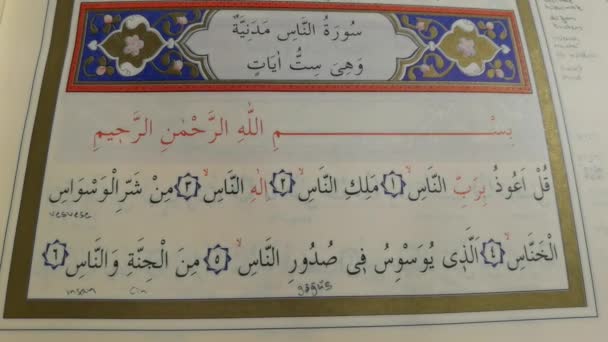 سُورَةُ النَّاسِ مَدَنِيَّةٌ
وَهِيَ سِتُّ اٰيَاتٍ
بِسْمِ اللّٰهِ الرَّحْمٰنِ الرَّحٖيمِ
قُلْ اَعُوذُ بِرَبِّ النَّاسِۙ ﴿١﴾ مَلِكِ النَّاسِۙ ﴿٢﴾ اِلٰهِ النَّاسِۙ ﴿٣﴾ مِنْ شَرِّ الْوَسْوَاسِ
vesvese
الْخَنَّاسِۙ ﴿٤﴾ اَلَّذٖى يُوَسْوِسُ فٖى صُدُورِ النَّاسِۙ ﴿٥﴾ مِنَ الْجِنَّةِ وَالنَّاسِ ﴿٦﴾
göğüs cin insan